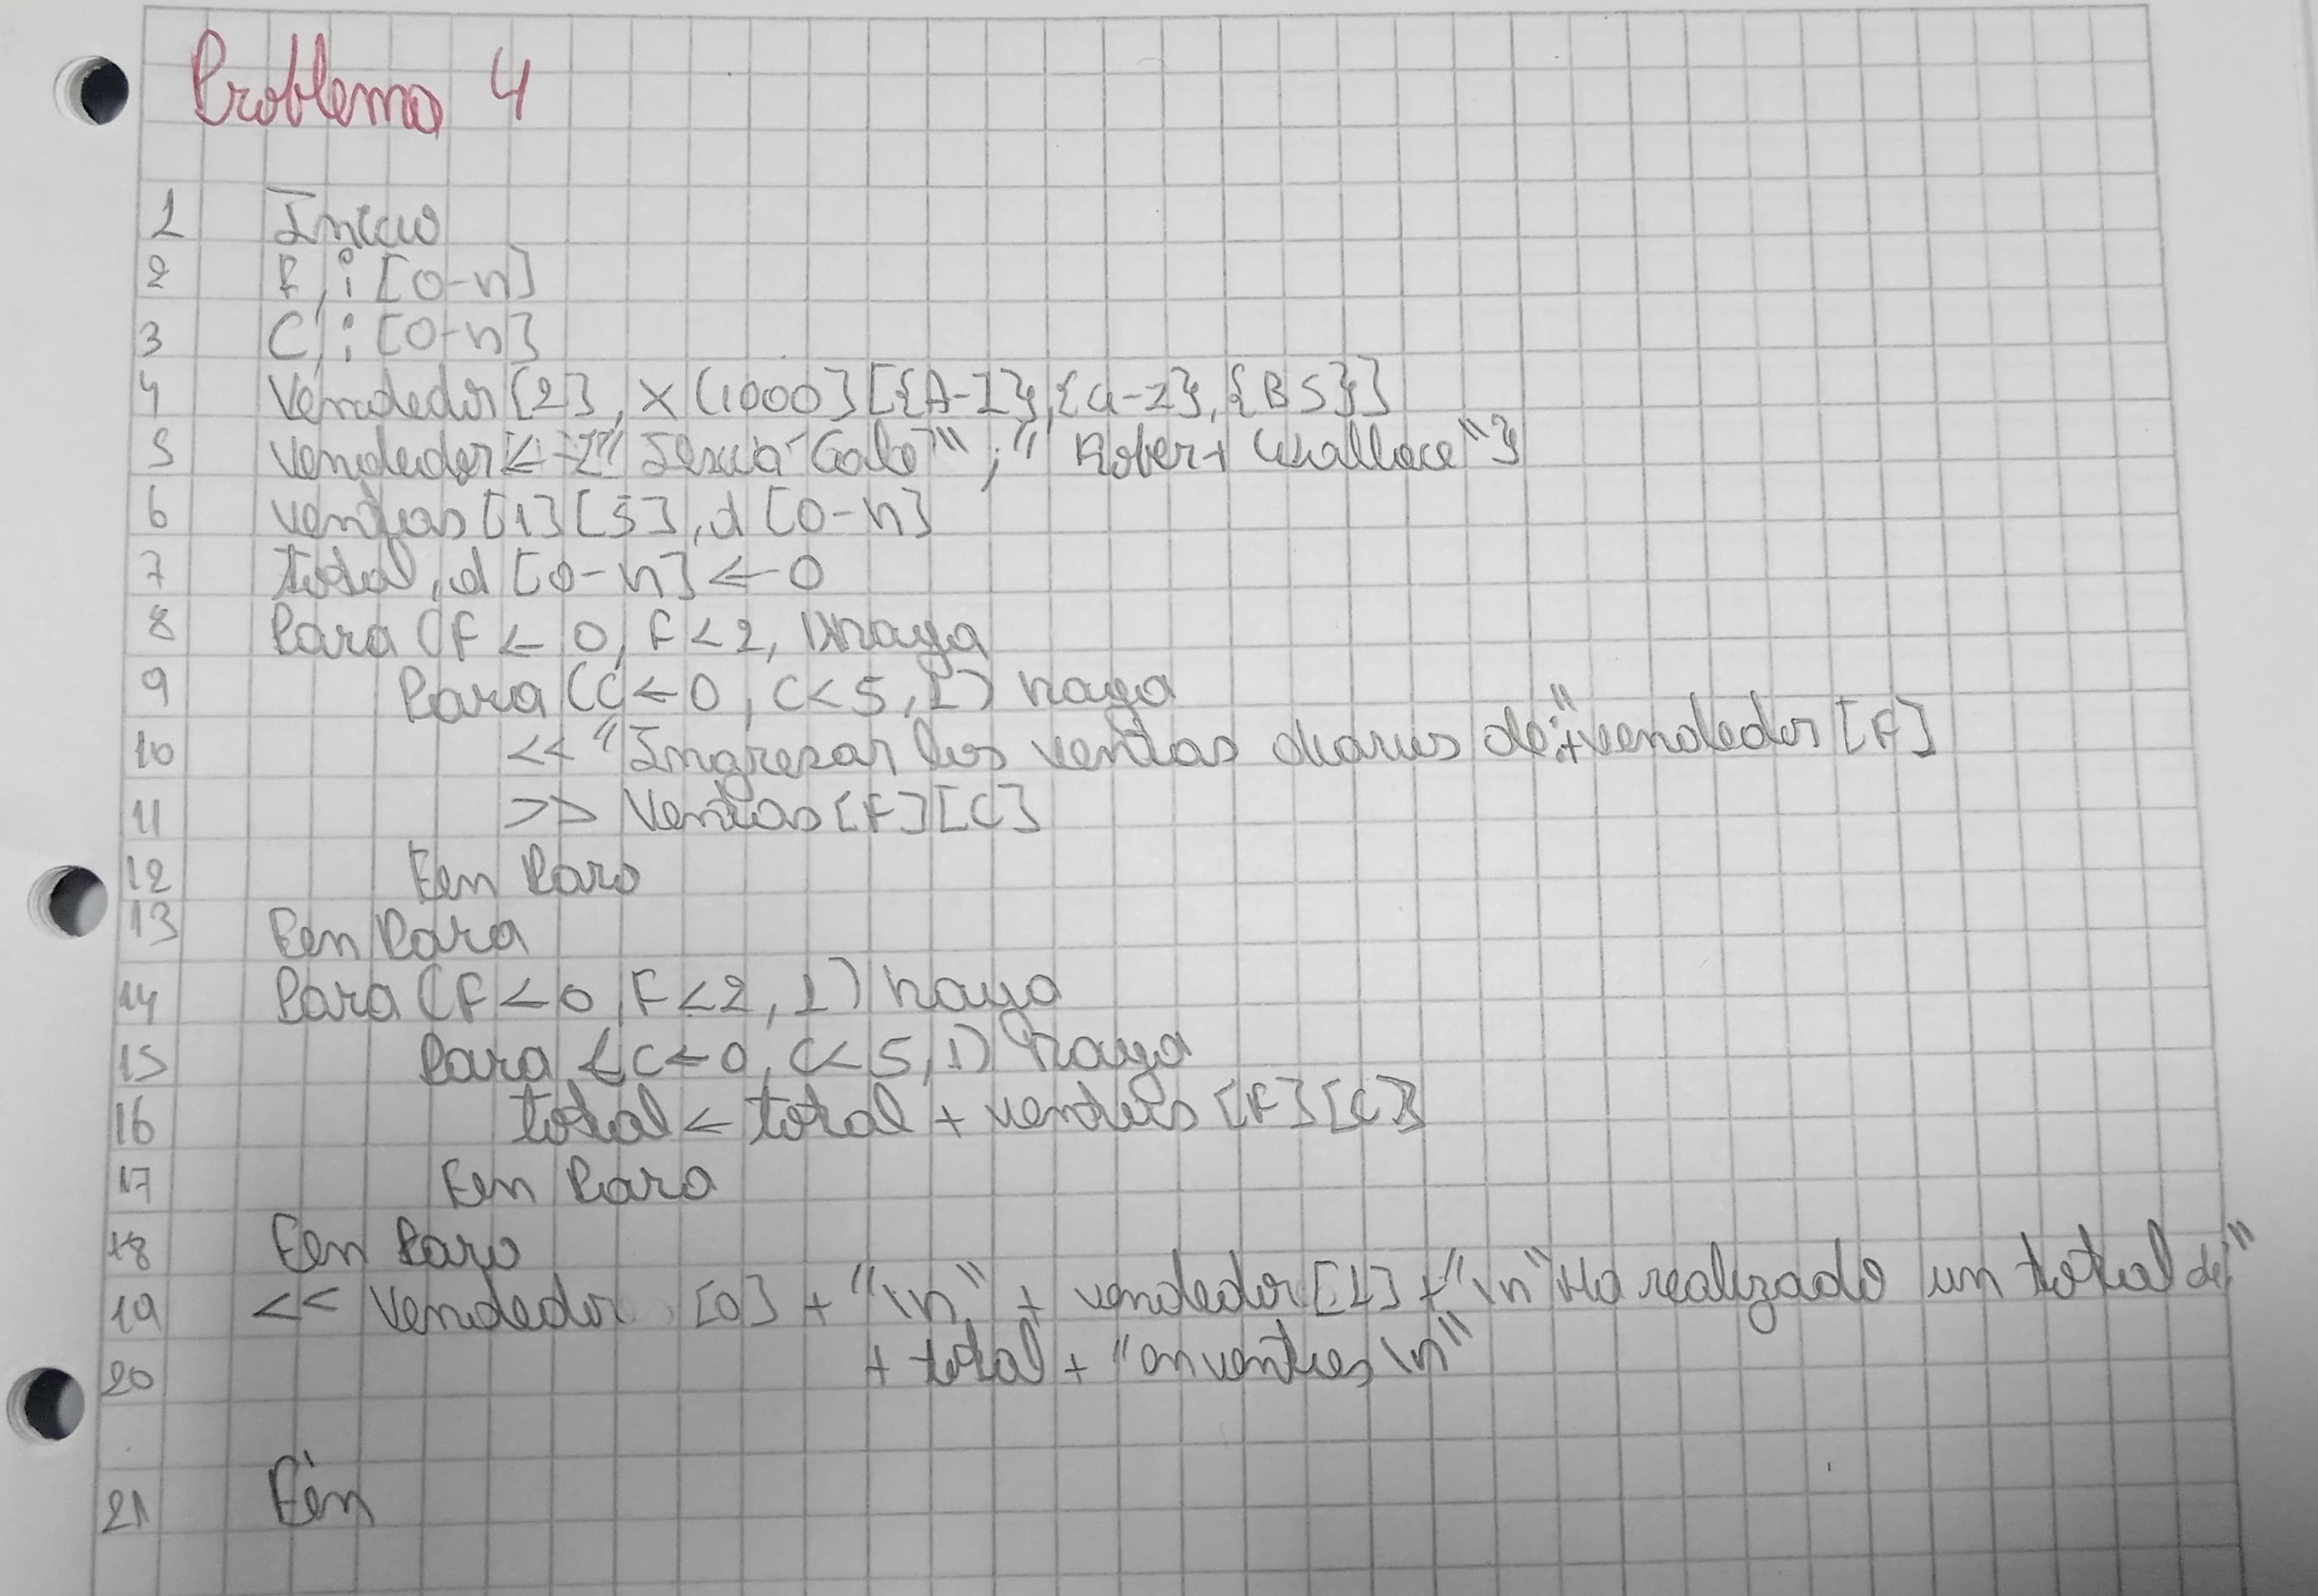 Problema 4
1 Inicio
2 F, i [0-n]
3 C, i [0-n]
4 Vendedor [2], X (1000] [{A-Z}, {a-z}, {BS}]
5 vendedor ← {" Galo" ; " Robert Wallace" }
6 ventas [1] [5], d [0-n]
7 total, d [0-n] ← 0
8 Para (F ← 0, F < 2, 1) haga
9 Para (C ← 0, C < 5, 1) haga
10 << "Ingresar las ventas diarias de:" + vendedor [F]
11 >> Ventas [F] [C]
12 Fin Para
13 Fin Para
14 Para (F < 0, F < 2, 1) haga
15 Para (C ← 0, C < 5, 1) haga
16 total ← total + ventas [F] [C]
17 Fin Para
18 Fin Para
19 << Vendedor [0] + "\n" + vendedor [1] + "\n" Ha realizado un total de:"
20 + total + "en ventas \n"
21 Fin